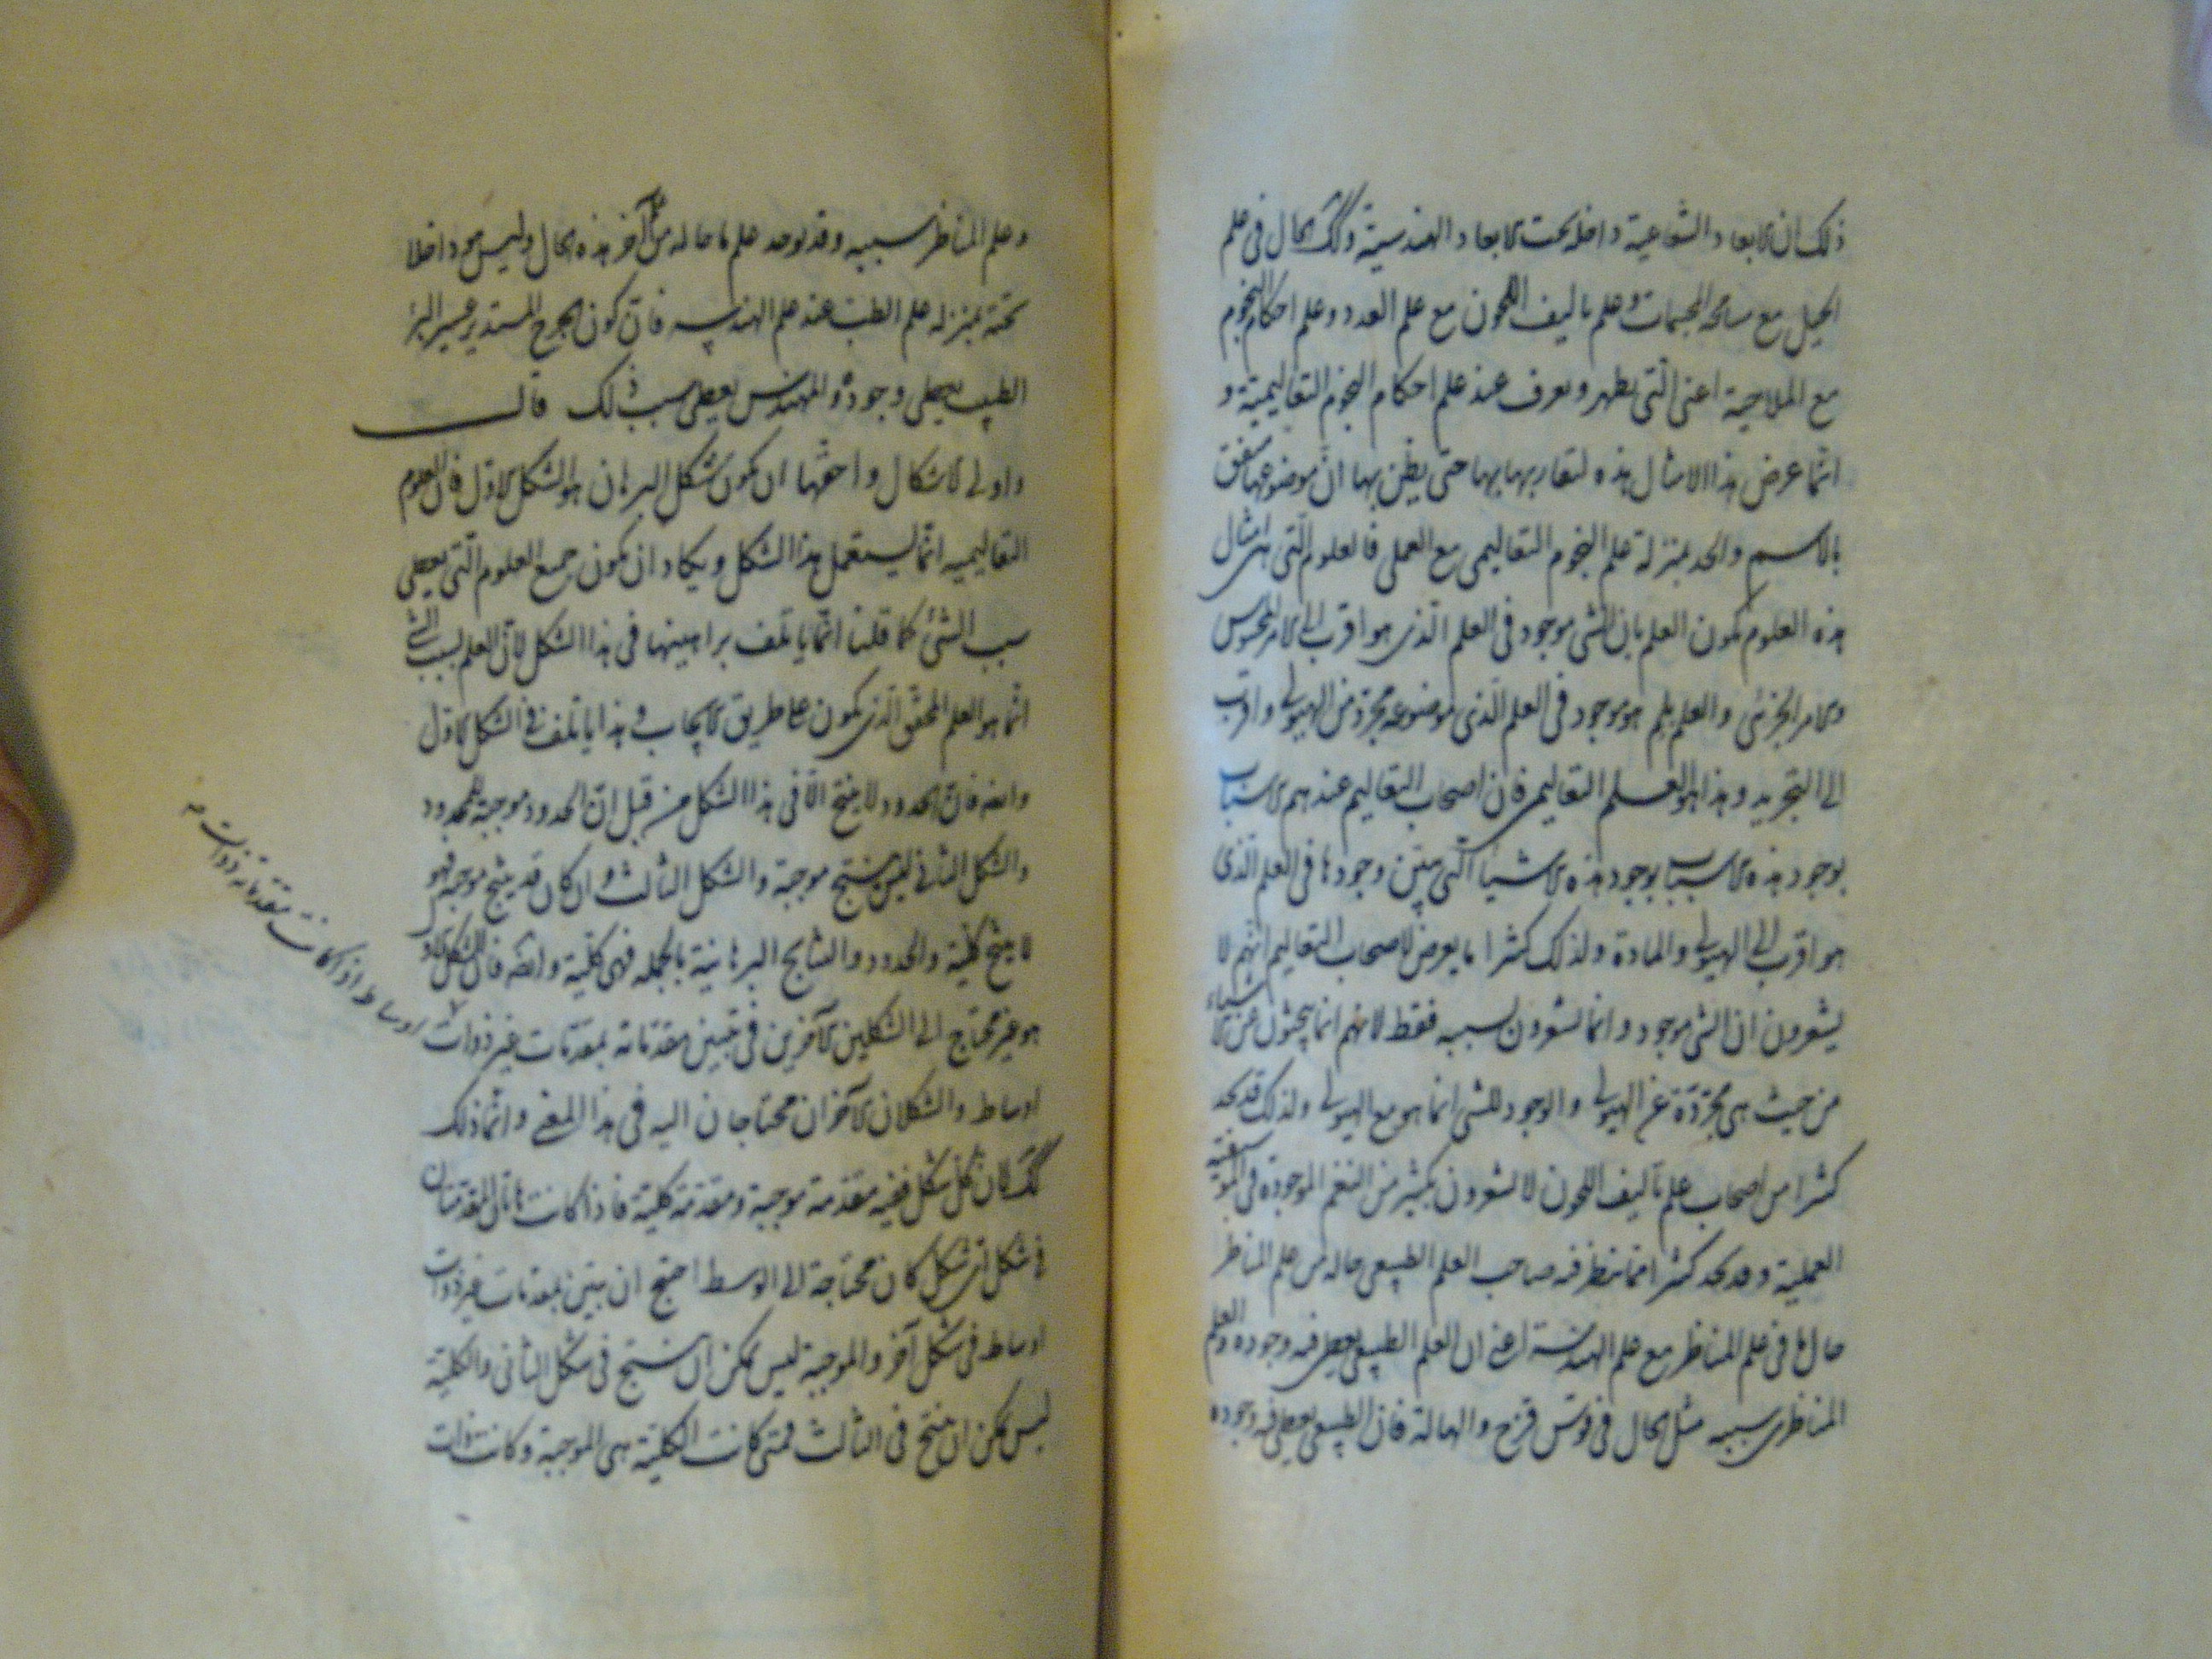 ذلك ان الابعاد الشعاعية داخلة تحت الابعاد الهندسية وكك الحال فى علم
الحيل مع مساحة المجسمات وعلم تاليف اللحون مع علم العدد وعلم احكام النجوم
مع الملاحية اعنى التى تظهر وتعرف عند علم احكام النجوم التعاليمية و
انما عرض هذا الامثال هذه لتقاربها بها حتى يظن بها ان موضوعها متفق
بالاسم والحد بمنزلة علم النجوم التعاليمى مع العملى فالعلوم التى هى امثال
هذه العلوم يكون العلم بان الشى موجود فى العلم الذى هو اقرب الى الامر المحسوس
والامر الجزئى والعلم بلم هو موجود فى العلم الذى موضوعه مجردة من الهيولى واقرب
الى التجريد وهذا هو العلم التعاليمى فان اصحاب التعاليم عندهم الاسباب
بوجود هذه الاسباب بوجود هذه الاشيا التى تبين وجودها فى العلم الذى
هو اقرب الى الهيولى والمادة ولذلك كثيرا ما يعرض لاصحاب التعاليم انهم لا
يشعرون ان الشى موجود وانما يشعرون بسببه فقط لانهم انما يبحثون عن الاشياء
من حيث هى مجردة عن الهيولى والوجود للشى انما هو مع الهيولى ولذلك قد نجد
كثيرا من اصحاب علم تاليف اللحون لا يشعرون بكثير من النغم الموجودة فى الموسيقى
العملية وقد نجد كثيرا مما ينظر فيه صاحب العلم الطبيعى حاله من علم المناظر
حالها فى علم المناظر مع علم الهندسة اعنى ان العلم الطبيعى يعطى فيه وجوده والعلم
المناظرى سببه مثل الحال فى قوس قزح والهالة فان الطبيعى يعطى فيه وجوده
وعلم المناظر سببه وقد يوجد علم ما حاله من علم آخر هذه الحال وليس هو داخلا
تحته بمنزلة علم الطب عند علم الهندسه فان كون الجرح المستدير عسير البرء
الطبيب يعطى وجوده والمهندس يعطى سبب ذلك قال
واولى الاشكال واحقها ان يكون شكل البرهان هو الشكل الاول فان العلوم
التعاليميه انما يستعمل هذا الشكل ويكاد ان يكون جميع العلوم التى يعطى
سبب الشئ كما قلنا انما ياتلف براهينها فى هذا الشكل لان العلم بسبب الشئ
انما هو العلم المحقق الذى يكون على طريق الايجاب وهذا ياتلف فى الشكل الاول
وايضا فان الحدود لا ينتج الا فى هذا الشكل من قبل ان الحدود موجبة للمحدود
والشكل الثانى ليس ينتج موجبة والشكل الثالث وان كان قد ينتج موجبة فهو
لا ينتج كلية والحدود والنتايج البرهانية بالجملة فهى كلية وايضا فان الشكل الاول
هو غير محتاج الى الشكلين الآخرين فى تبيين مقدماته بمقدمات غير ذوات
اوساط والشكلان الآخران محتاجان اليه فى هذا المعنى وانما ذلك
كك لان كل شكل ففيه مقدمة موجبة ومقدمة كلية فاذا كانت هاتان المقدمتان
فى شكل اى شكل كان محتاجة الى الوسط احتيج ان يتبين بمقدمات غير ذوات
اوساط فى شكل آخر والموجبة ليس يمكن ان ينتج فى شكل الثانى والكلية
ليس يمكن ان ينتج فى الثالث فمتى كانت الكلية هى الموجبة وكانت ذات
اوساط اذا كانت مقدماته ذوات صه